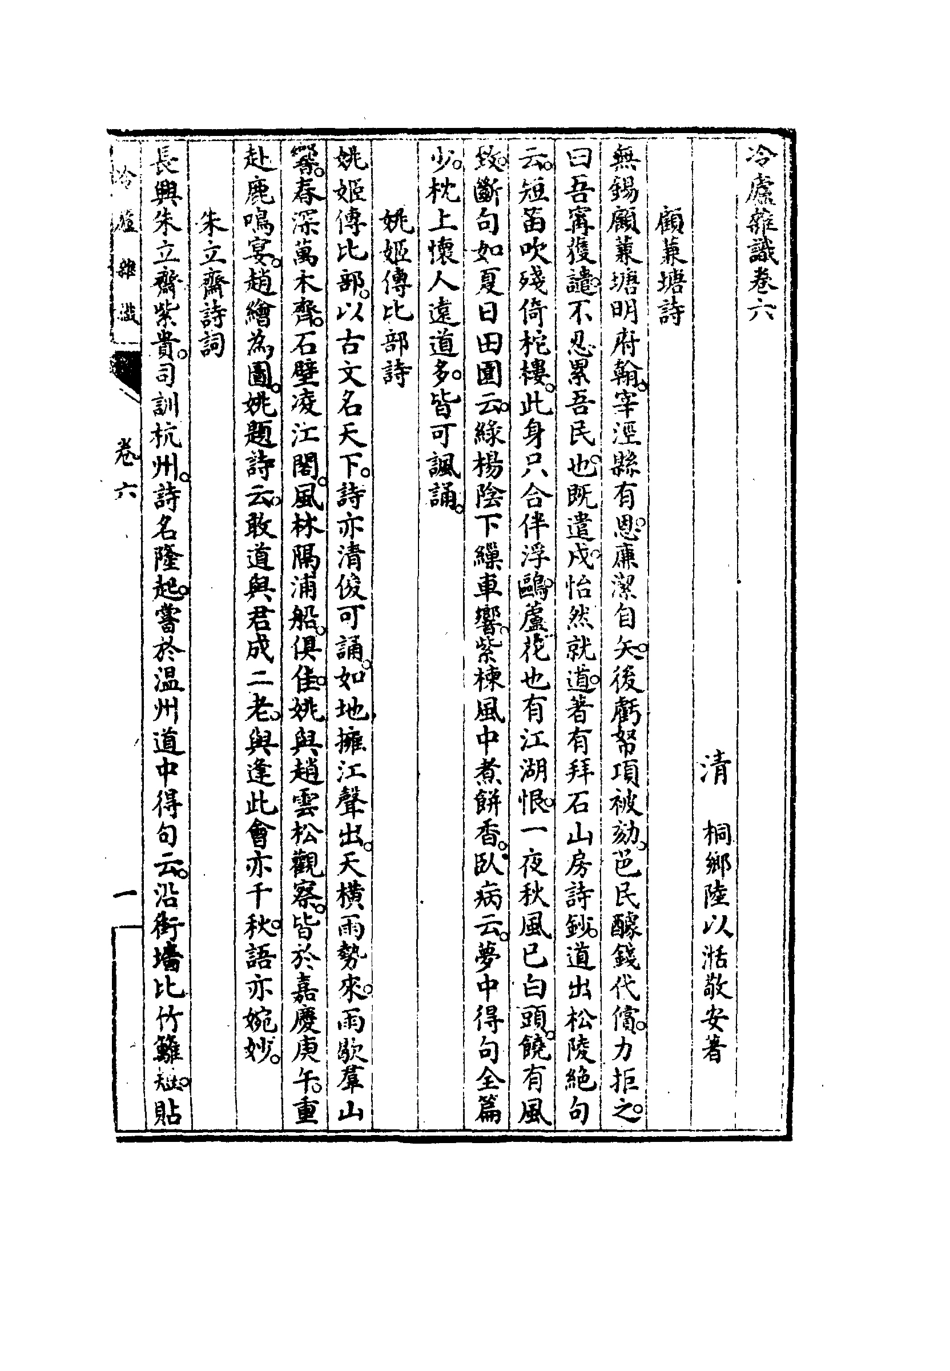 冷廬雜識卷六
清　桐鄉陸以湉敬安著
顧蒹塘詩
無錫顧蒹塘明府翰。宰涇縣有恩。廉潔自矢。後虧帑項被劾。邑民醵錢代償。力拒之。
曰吾甯獲譴。不忍累吾民也。既遣戍。怡然就道。著有拜石山房詩鈔。道出松陵絕句
云。短笛吹殘倚柁樓。此身只合伴浮鷗。蘆花也有江湖恨。一夜秋風已白頭。饒有風
致。斷句如夏日田園云。綠楊陰下繅車響。紫楝風中煮餅香。臥病云。夢中得句全篇
少。枕上懷人遠道多。皆可諷誦。
姚姬傳比部詩
姚姬傳比部。以古文名天下。詩亦清俊可誦。如地擁江聲出。天橫雨勢來。雨歇羣山
響。春深萬木齊。石壁凌江閣。風林隔浦船。俱佳。姚與趙雲松觀察。皆於嘉慶庚午。重
赴鹿鳴宴。趙繪為圖。姚題詩云。敢道與君成二老。與逢此會亦千秋。語亦婉妙。
朱立齋詩詞
長興朱立齋紫貴。司訓杭州。詩名隆起。嘗於温州道中得句云。沿街墻比竹籬短。貼
冷廬雜識
卷六
一